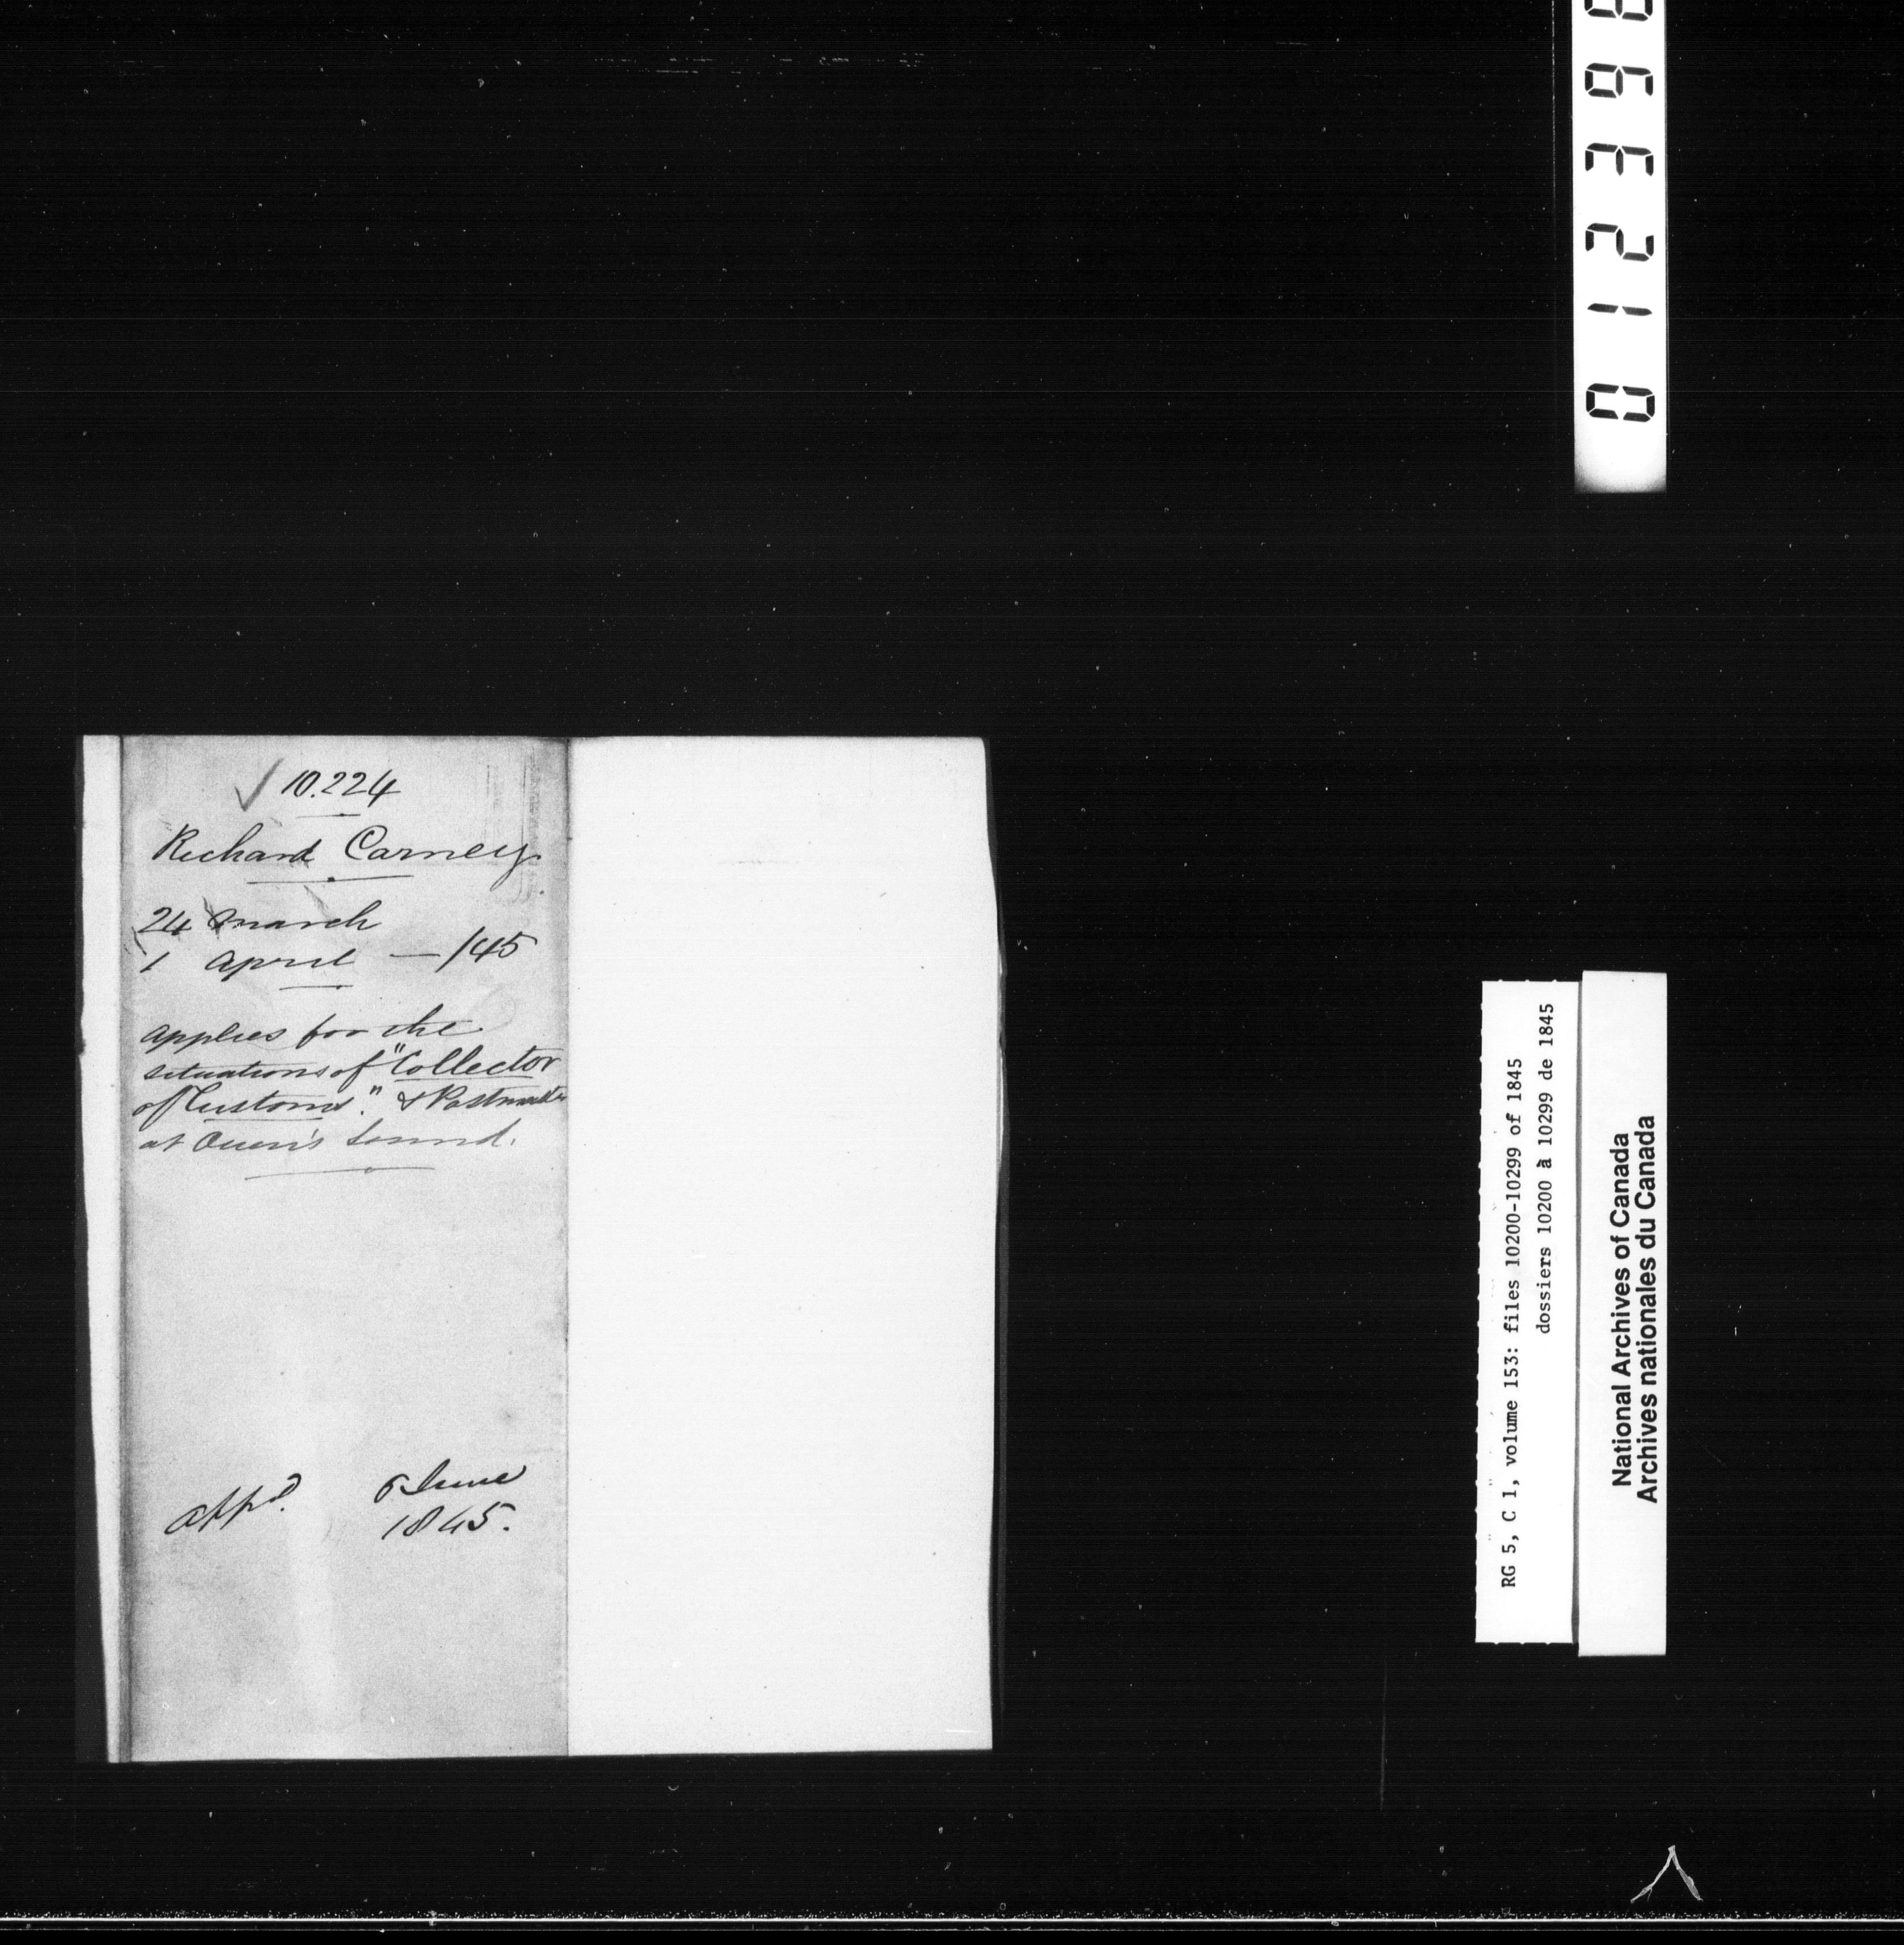 ✓ 10.224
Richard Carney
24 March
1 April — /45
applies for the
situations of "Collector
of Customs." & Postmaster
at Owen's Sound.
appd. 6 June
1845.
RG 5, C 1, volume 153: files 10200-10299 of 1845
dossiers 10200 à 10299 de 1845
National Archives of Canada
Archives nationales du Canada